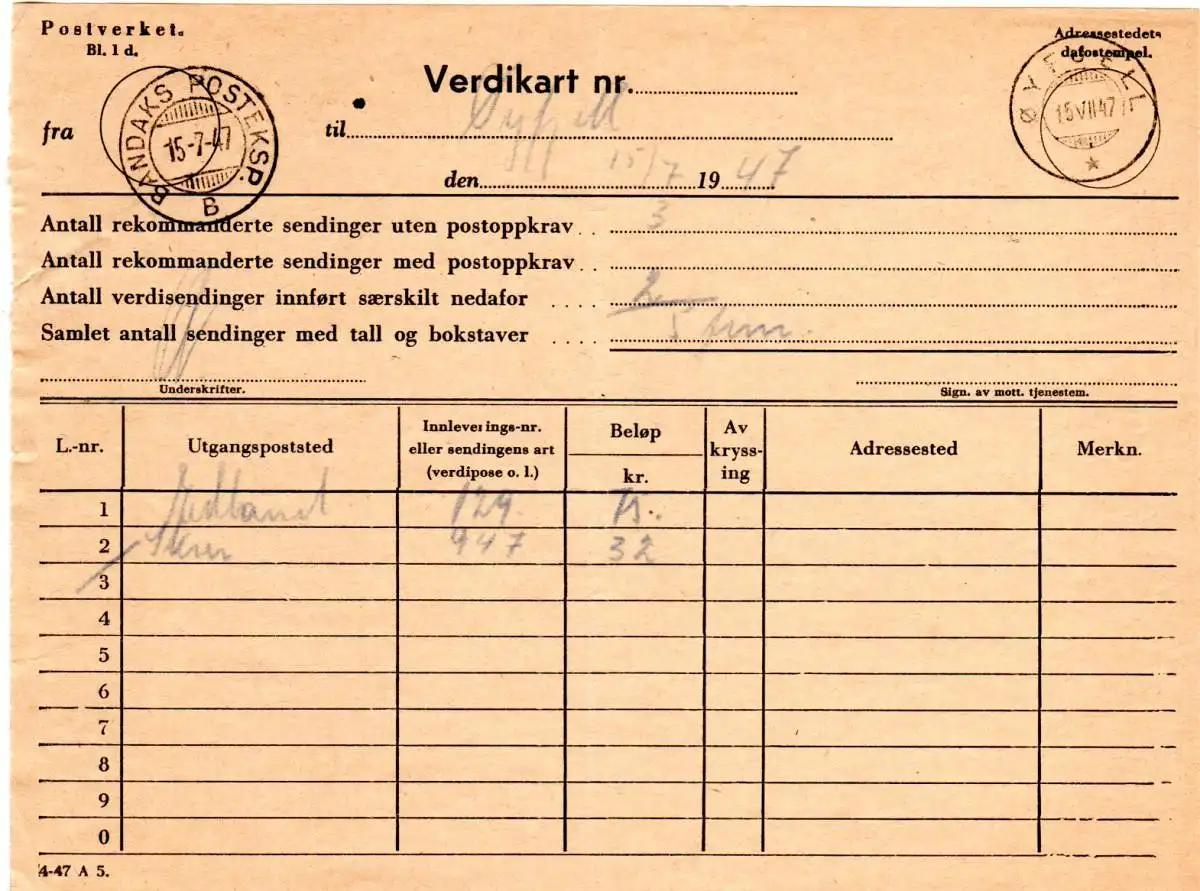 Postverket.
Bl. 1 d.
Adressestedets
datostempel.
Verdikart nr.
BANDAKS POSTEKSP. B
15-7-47
ØYFJELL
15 VII 47
fra
til Øyfjell
den 15/7 1947
Antall rekommanderte sendinger uten postoppkrav 3
Antall rekommanderte sendinger med postoppkrav
Antall verdisendinger innført særskilt nedafor 2
Samlet antall sendinger med tall og bokstaver 5 fem.
Underskrifter.
Sign. av mott. tjenestem.
L.-nr. Utgangspoststed Innleverings-nr. eller sendingens art (verdipose o. l.) Beløp kr. Av kryss- ing Adressested Merkn.
1 129 15.
2 947 32
3
4
5
6
7
8
9
0
4-47 A 5.